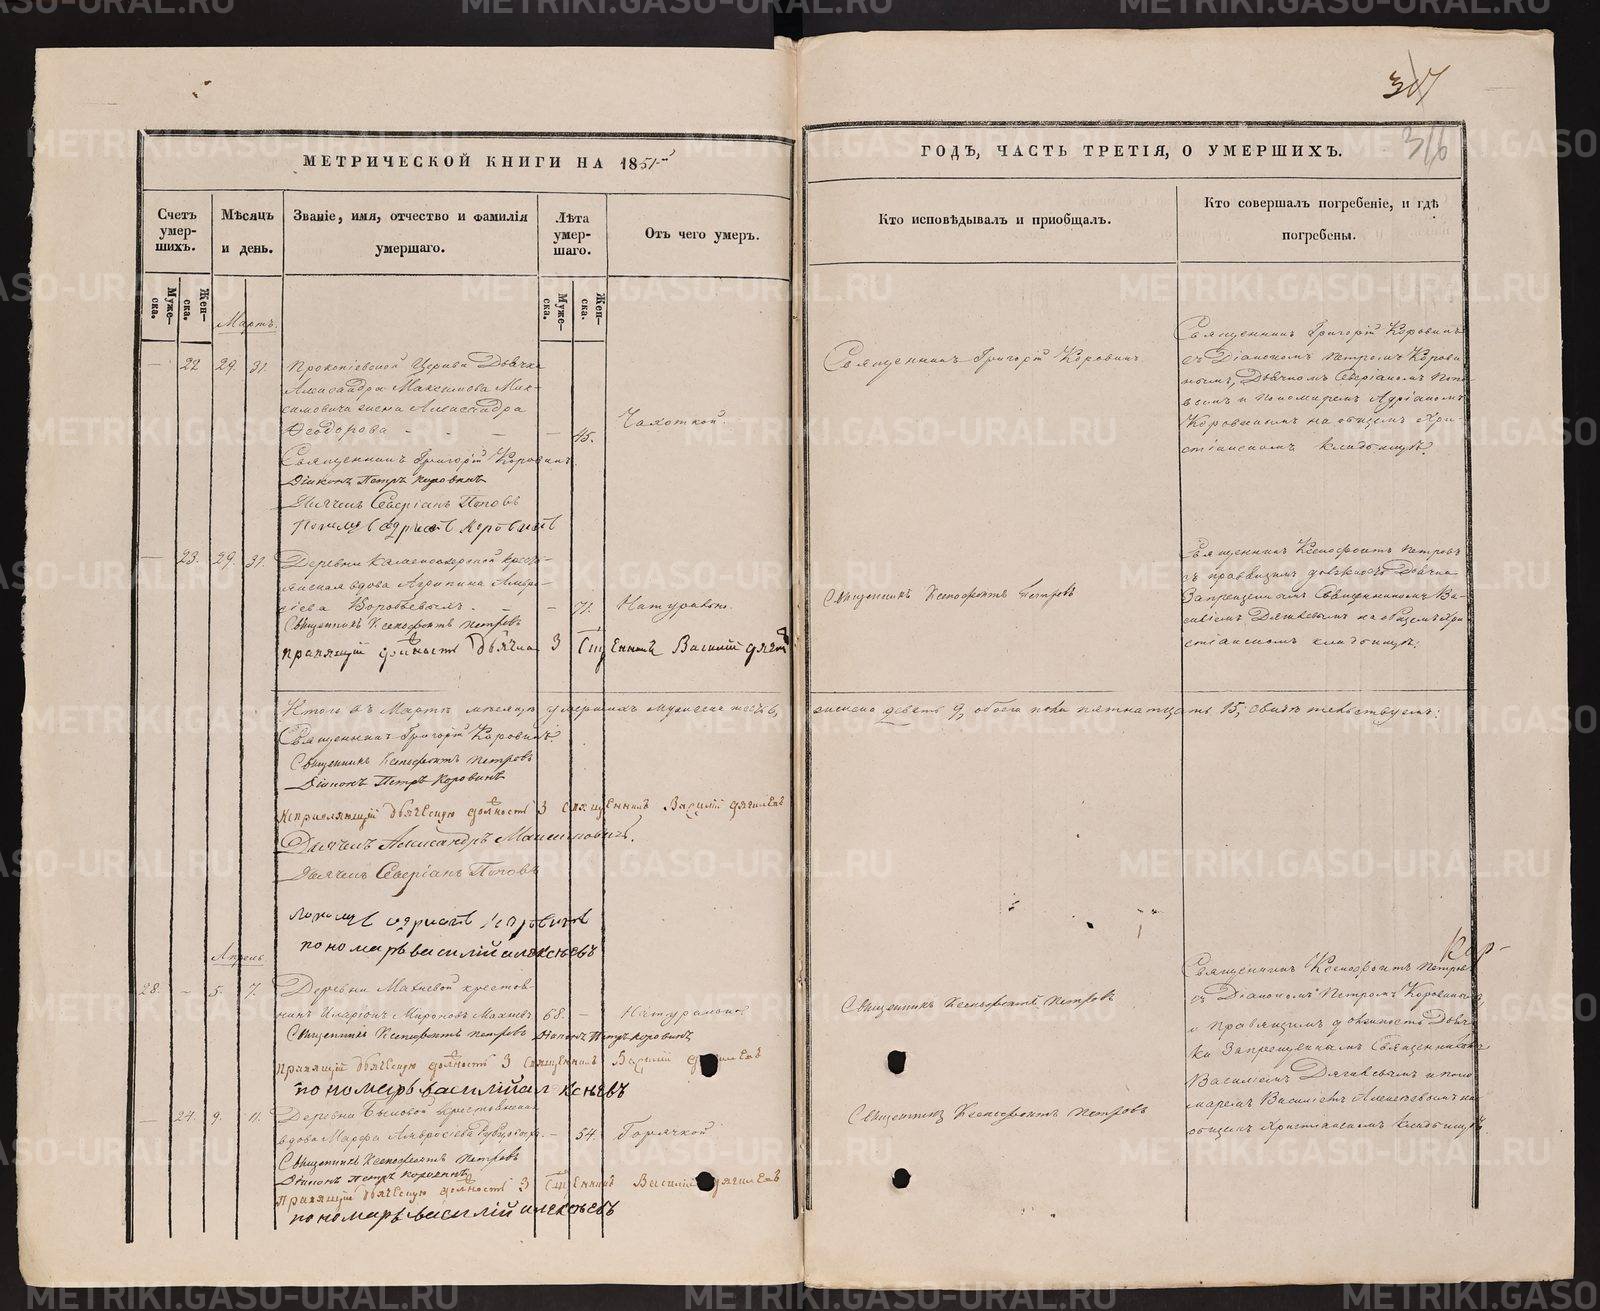 317
316
МЕТРИЧЕСКОЙ КНИГИ НА 1851й
ГОДЪ, ЧАСТЬ ТРЕТІЯ, О УМЕРШИХЪ.
Счетъ умер-шихъ.
Мѣсяцъ и день.
Званіе, имя, отчество и фамилія умершаго.
Лѣта умер-шаго.
Отъ чего умеръ.
Кто исповѣдывалъ и пріобщалъ.
Кто совершалъ погребеніе, и гдѣ погребены.
Муже-ска.
Жен-ска.
Муже-ска.
Жен-ска.
Мартъ.
— 22 29. 31. Прокопіевской Церкви Дьячка
Александра Максимова Мак-
симовича жена Александра
Ѳеодорова - - — — 45. Чахоткой.
Священникъ Григорій Коровинъ
Діаконъ Петръ Коровинъ
Дьячекъ Северіанъ Поповъ
Священникъ Григорій Коровинъ
Священникъ Григорій Коровинъ
съ Діакономъ Петромъ Корови-
нымъ, Дьячкомъ Северіаномъ Попо-
вымъ и Пономаремъ Адріаномъ
Коровинымъ на общемъ Хри-
стіанскомъ кладбищѣ.
— 23. 29. 31. Деревни
вдова Агрипина Амвро-
сіева — — 71. Натурально.
Священникъ Ксенофонтъ Петровъ
Правящій должность Дьячка З Священникъ Василій
Священникъ Ксенофонтъ Петровъ
Священникъ Ксенофонтъ Петровъ
съ правящимъ должность Дьячка
Запрещеннымъ Священникомъ Ва-
силіемъ Дягилевымъ на общемъ Хри-
стіанскомъ кладбищѣ.
Итого въ Мартѣ мѣсяцѣ умершихъ мужеска шесть 6, женска девять 9, обоего пола пятнатцать 15, свидѣтельствуемъ:
Священникъ Григорій Коровинъ.
Священникъ Ксенофонтъ Петровъ
Діаконъ Петръ Коровинъ
Исправляющій дьяческую должность З Священникъ Василій Дягилевъ
Дьячекъ Александръ Максимовичъ.
Дьячекъ Северіанъ Поповъ
пономарь василій алексѣевъ
Апрель
28. - 5. 7. Деревни Махневой крестья-
нинъ Иларіонъ Мироновъ Махневъ 68. — Натурально
Священникъ Ксенофонтъ Петровъ Діаконъ Петръ Коровинъ
Правящій дьяческую должность З Священникъ Василій Дягилевъ
пономарь василій алексѣевъ
Священникъ Ксенофонтъ Петровъ
Кор-
Священникъ Ксенофонтъ Петровъ
съ Діакономъ Петромъ Коровинымъ,
и Правящимъ должность Дьяч-
ка Запрещеннымъ Священникомъ
Василіемъ Дягилевымъ и поно-
маремъ Василіемъ Алексѣевымъ на
общемъ Христіанскомъ кладбищѣ.
— 24. 9. 11. Деревни Быковой крестьянская
вдова Марфа Амвросіева — 54. Горячкой
Священникъ Ксенофонтъ Петровъ
Діаконъ Петръ Коровинъ
Правящій дьяческую должность З Священникъ Василій Дягилевъ
пономарь василій алексѣевъ
Священникъ Ксенофонтъ Петровъ
METRIKI.GASO-URAL.RU